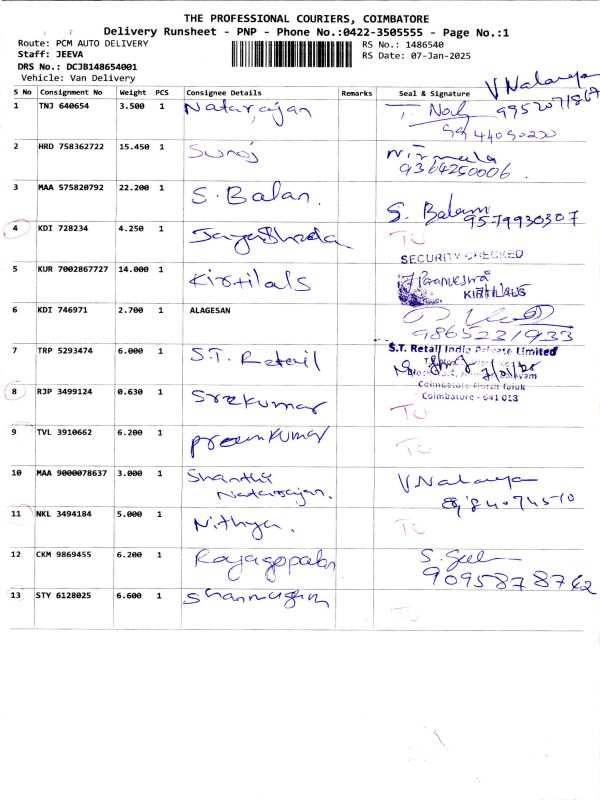 THE PROFESSIONAL COURIERS, COIMBATORE
Delivery Runsheet - PNP - Phone No.:0422-3505555 - Page No.:1
Route: PCM AUTO DELIVERY
RS No.: 1486540
Staff: JEEVA
RS Date: 07-Jan-2025
DRS No.: DCJB148654001
Vehicle: Van Delivery
V Nalaraya
S No Consignment No Weight PCS Consignee Details Remarks Seal & Signature
9952071867
1 TNJ 640654 3.500 1 Natarajan
2 HRD 758362722 15.450 1 Suroj Nirmala
9364250006
3 MAA 575820792 22.200 1 S. Balan S. Balam
9579930307
4 KDI 728234 4.250 1 TU
SECURITY CHECKED
5 KUR 7002867727 14.000 1 Kirtilals
KIRTILALS
6 KDI 746971 2.700 1 ALAGESAN
9865231933
7 TRP 5293474 6.000 1 S.T. Retail S.T. Retail India Private Limited
Coimbatore North Taluk
Coimbatore - 641 018
8 RJP 3499124 0.630 1 Srekumar TU
9 TVL 3910662 6.200 1 preemkumar TU
10 MAA 9000078637 3.000 1 Shanthi V Nalaraya
Natarajan.
11 NKL 3494184 5.000 1 Nithya. TU
12 CKM 9869455 6.200 1 Rajagopalan
9095878762
13 STY 6128025 6.600 1 Shanmugam TU